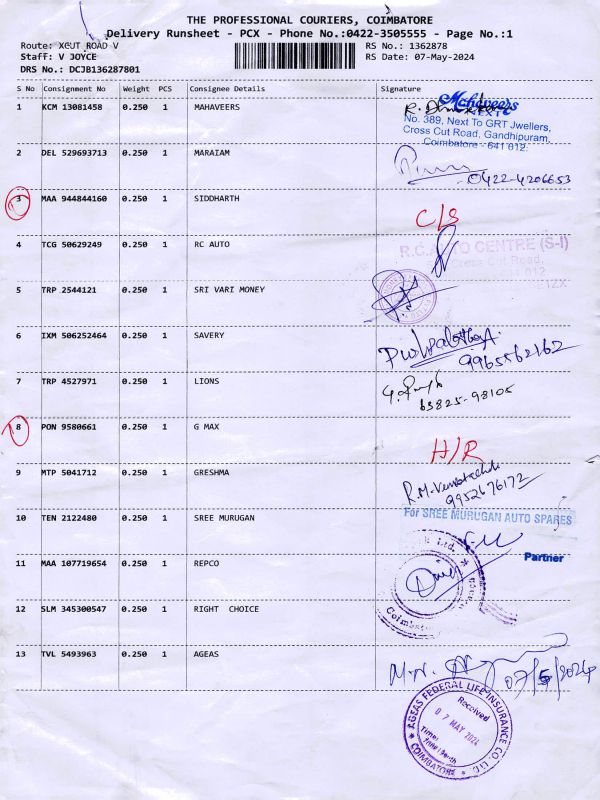 THE PROFESSIONAL COURIERS, COIMBATORE
Delivery Runsheet - PCX - Phone No.:0422-3505555 - Page No.:1
Route: XCUT ROAD V
RS No.: 1362878
Staff: V JOYCE
RS Date: 07-May-2024
DRS No.: DCJB136287801
S No Consignment No Weight PCS Consignee Details Signature
1 KCM 13081458 0.250 1 MAHAVEERS
Mahaveers
NEXT
No. 389, Next To GRT Jwellers,
Cross Cut Road, Gandhipuram,
Coimbatore - 641 012.
2 DEL 529693713 0.250 1 MARAIAM
0422-4206653
3 MAA 944844160 0.250 1 SIDDHARTH
C/S
4 TCG 50629249 0.250 1 RC AUTO
R.C.AUTO CENTRE (S-I)
Cross Cut Road,
641 012
5 TRP 2544121 0.250 1 SRI VARI MONEY
6 IXM 506252464 0.250 1 SAVERY
9965562162
7 TRP 4527971 0.250 1 LIONS
63825-98105
8 PON 9580661 0.250 1 G MAX
H/R
9 MTP 5041712 0.250 1 GRESHMA
9952676172
10 TEN 2122480 0.250 1 SREE MURUGAN
For SREE MURUGAN AUTO SPARES
Partner
11 MAA 107719654 0.250 1 REPCO
Ltd.
12 SLM 345300547 0.250 1 RIGHT CHOICE
13 TVL 5493963 0.250 1 AGEAS
07/5/2024
AGEAS FEDERAL LIFE INSURANCE CO. LTD.
Received
07 MAY 2024
COIMBATORE